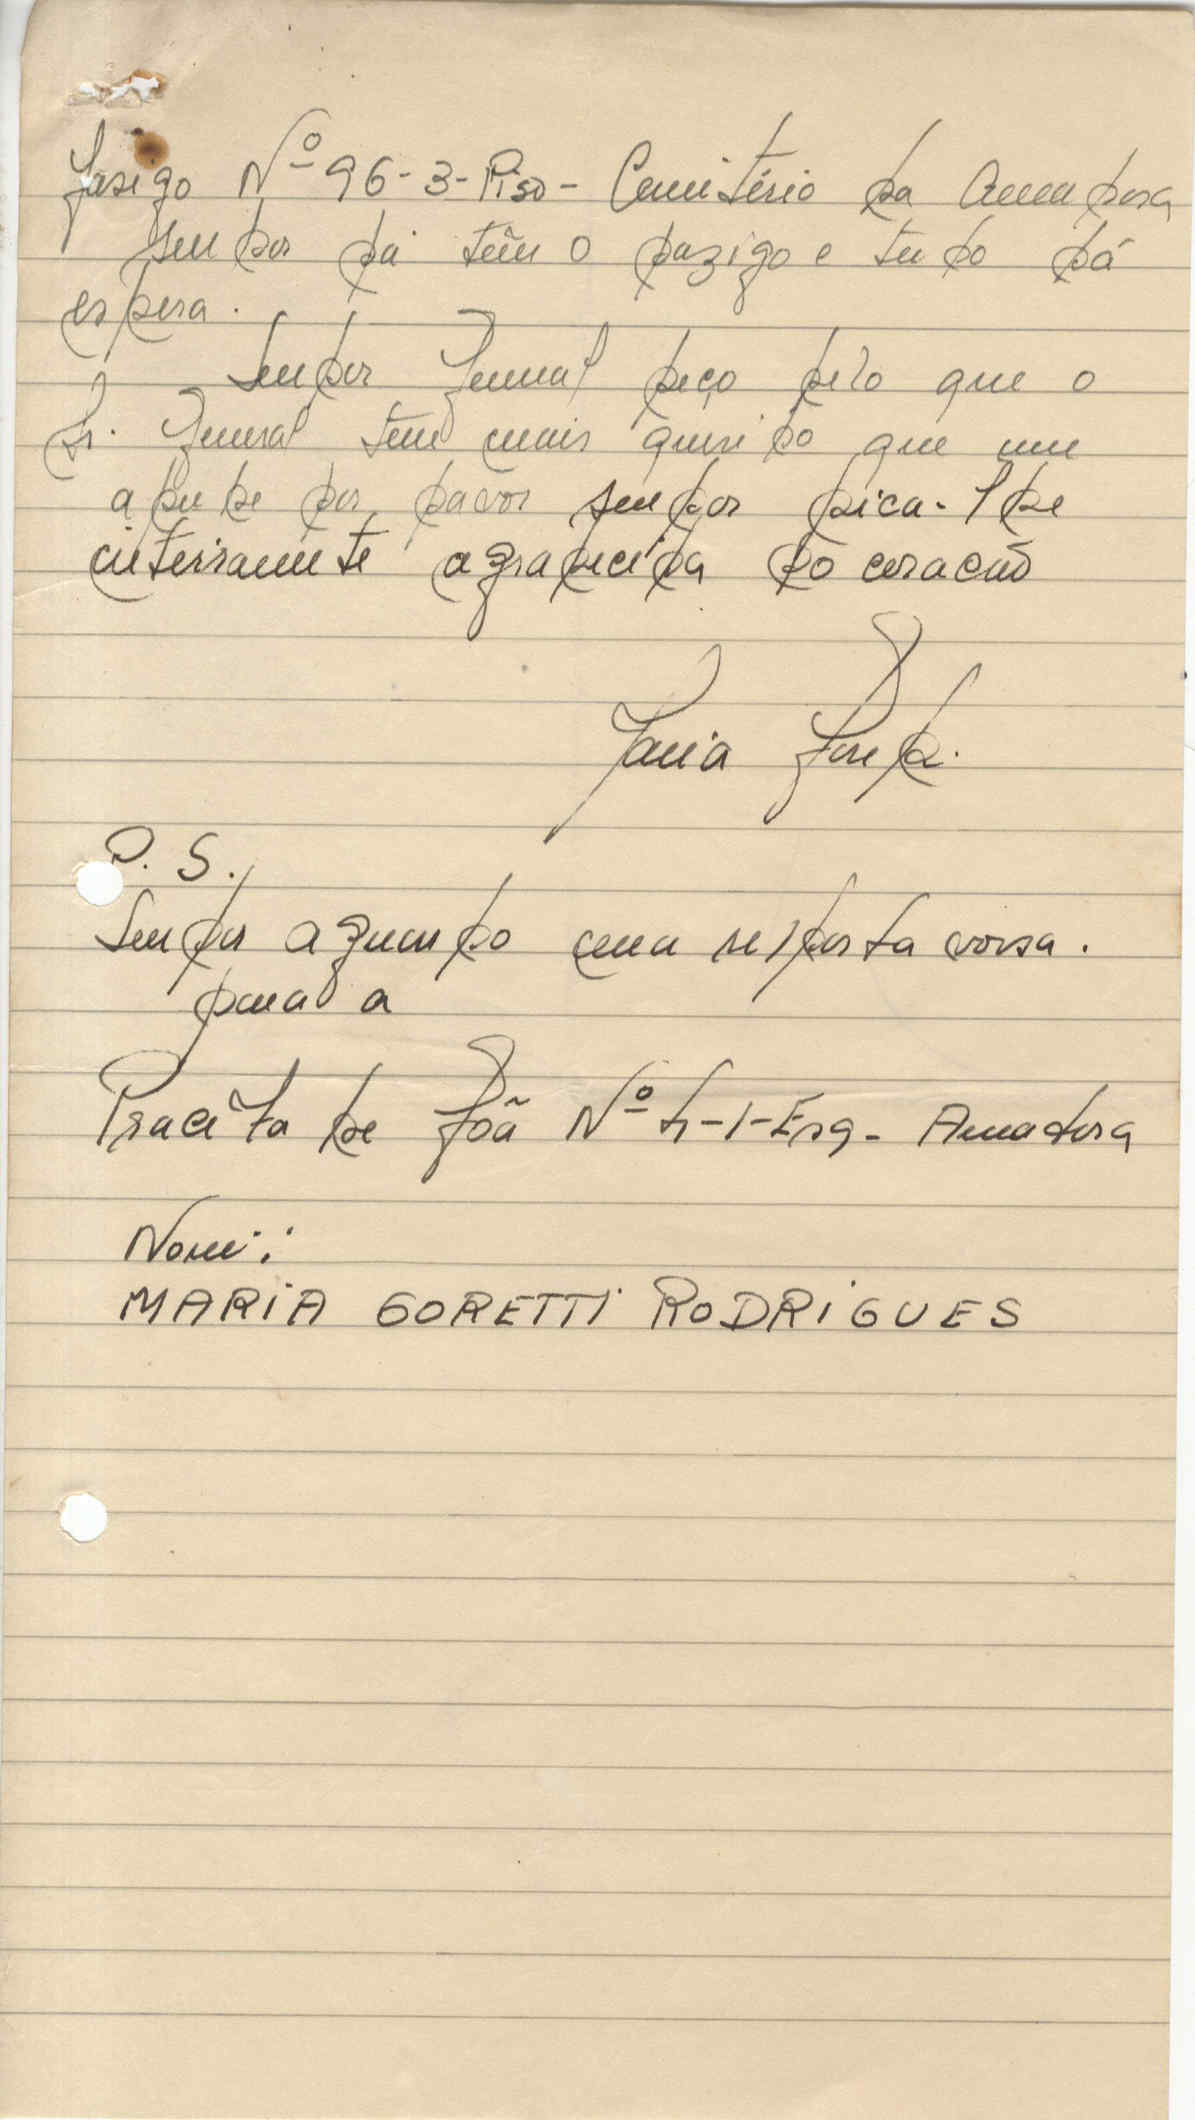 Jasigo Nº 96-3-Piso- Cemitério da Amadora
senhor já têm o jazigo e tudo há
espera.
Senhor General peço pelo que o
Sr. General tem mais querido que me
ajude por favor senhor fica-lhe
enterramente agradecida do coracão
Maria José R.
P. S.
Senhor aguardo uma resposta vossa.
para a
Praceta de João Nº 4-1-Esq- Amadora
Nome:
MARIA GORETTI RODRIGUES